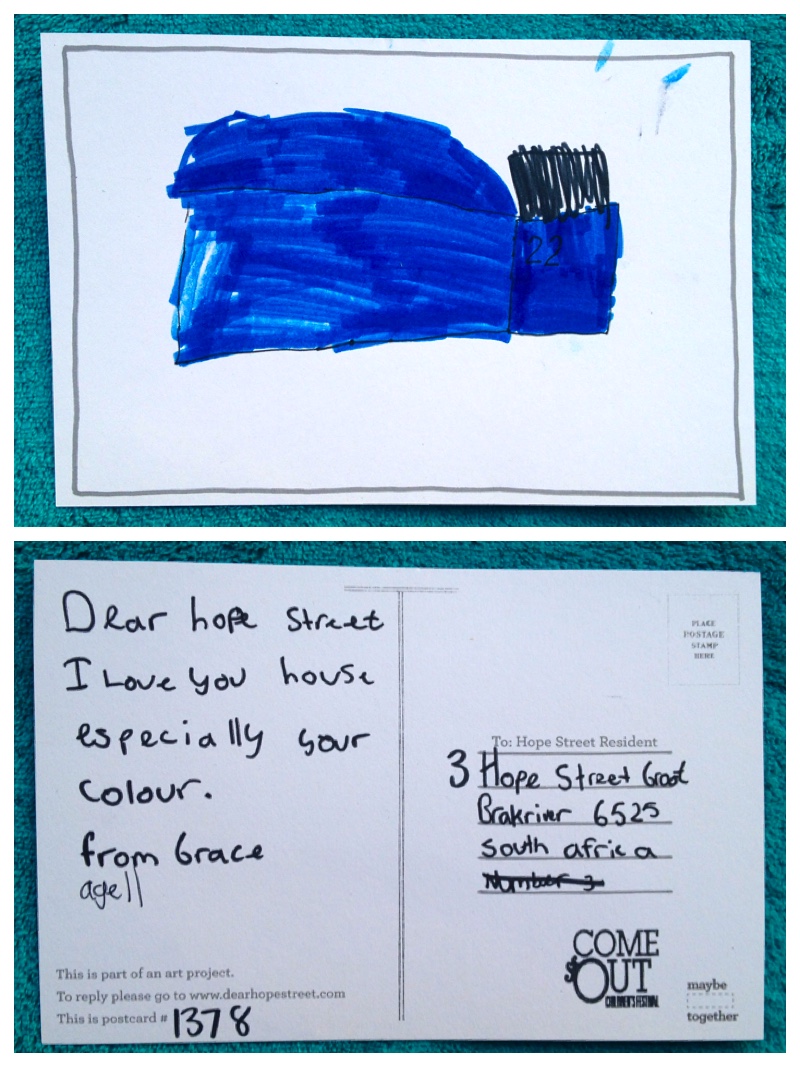 22
Dear hope Street
I Love you house
especially your
colour.
from Grace
age 11
This is part of an art project.
To reply please go to www.dearhopestreet.com
This is postcard # 1378
PLACE
POSTAGE
STAMP
HERE
To: Hope Street Resident
3 Hope Street Groot
Brakriver 6525
South africa
Number 3
COME
OUT
CHILDREN'S FESTIVAL
maybe
together